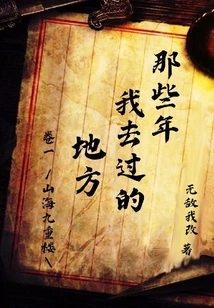 那些年
我去过的
地方
卷一 /山海九重楼\
无敌我改 著